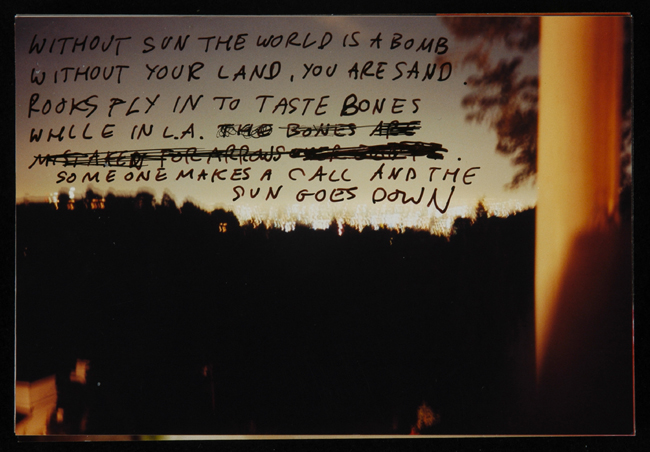 WITHOUT SUN THE WORLD IS A BOMB
WITHOUT YOUR LAND, YOU ARE SAND.
ROOKS FLY IN TO TASTE BONES
WHILE IN L.A. THE BONES ARE
MISTAKEN FOR ARROWS .
SOMEONE MAKES A CALL AND THE
SUN GOES DOWN